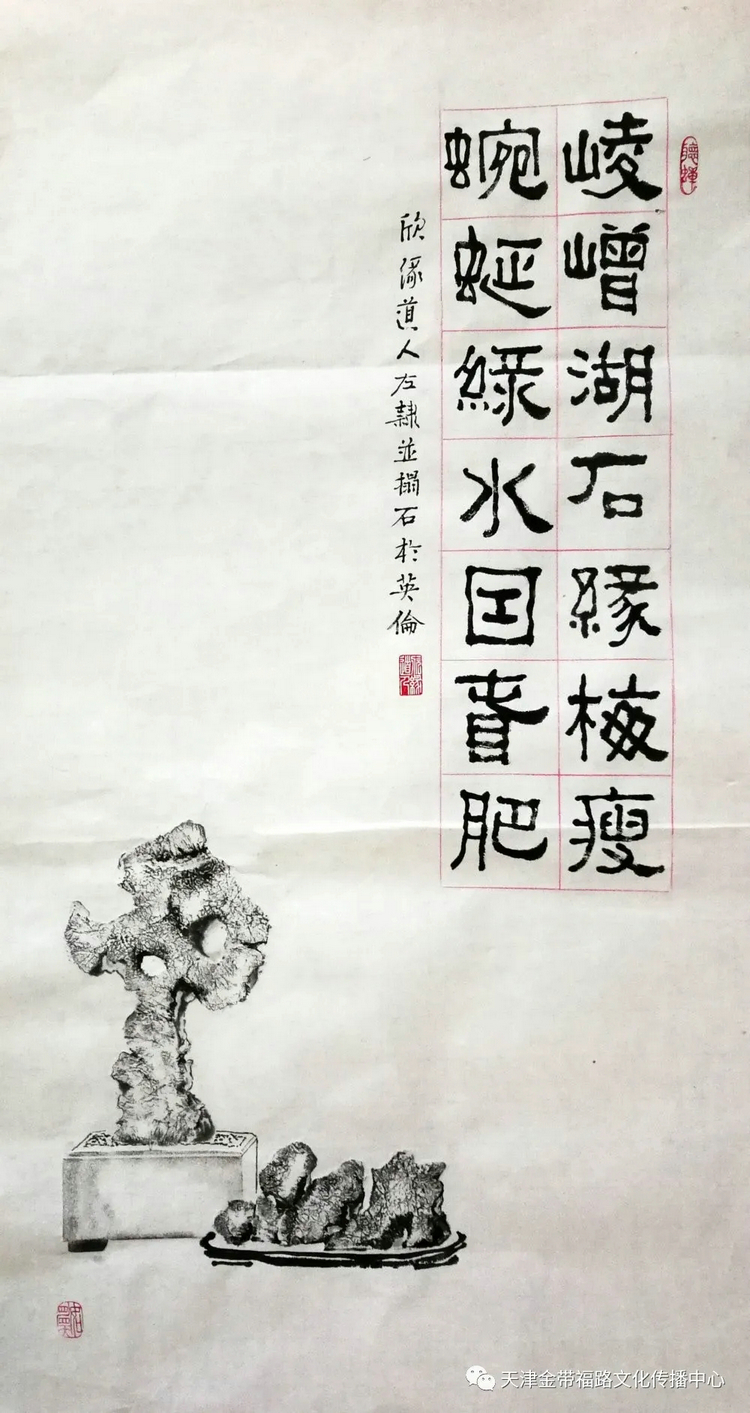 崚嶒湖石緣梅瘦
蜿蜒綠水因春肥
欣道人左隸並搨石於英倫
天津金带福路文化传播中心